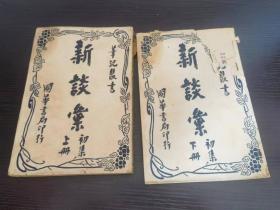 筆記叢書
新談彙
初集
上册
國華書局印行
叢書
新談彙
初集
下册
國華書局印行